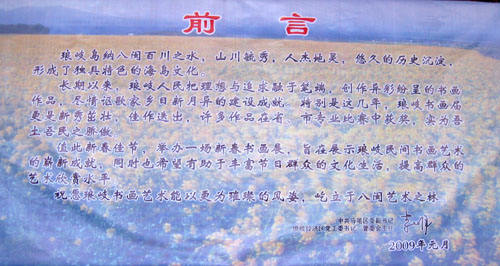 前 言
琅岐岛纳八闽百川之水，山川毓秀，人杰地灵，悠久的历史沉淀，
形成了独具特色的海岛文化。
长期以来，琅岐人民把理想与追求融于笔端，创作异彩纷呈的书画
作品，尽情讴歌家乡日新月异的建设成就。特别是这几年，琅岐书画届
更是新秀茁壮，佳作迭出，许多作品在省 市专业比赛中获奖，实为吾
土吾民之骄傲
值此新春佳节，举办一场新春书画展，旨在展示琅岐民间书画艺术
的崭新成就，同时也希望有助于丰富节日群众的文化生活，提高群众的
艺术欣赏水平
祝愿琅岐书画艺术能以更为璀璨的风姿，屹立于八闽艺术之林
中共马尾区委副书记
琅岐经济区党工委书记、管委会主任
2009年元月